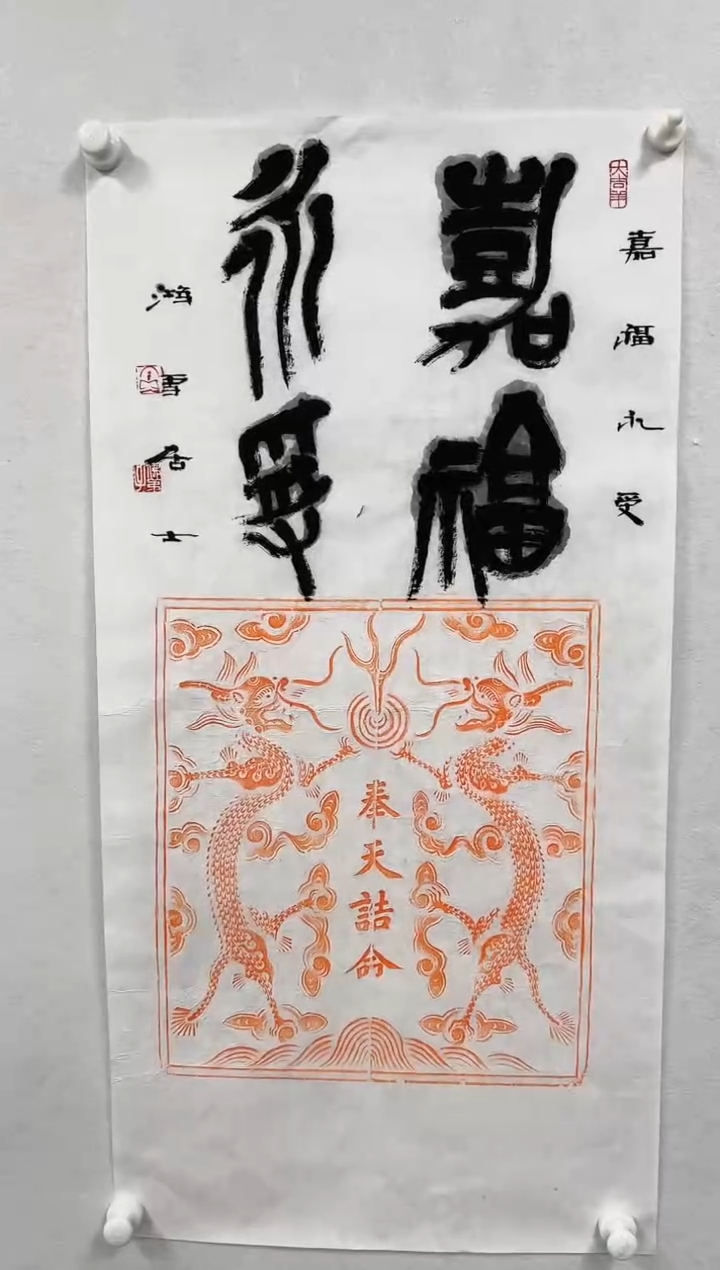 大吉羊
嘉福永受
嘉福
永受
鴻雪居士
奉天誥命